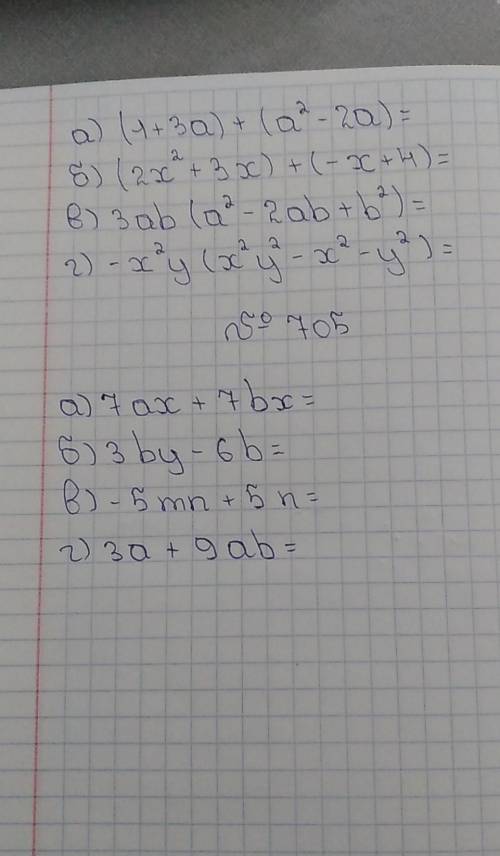 а) (1+3a) + (a² - 2a) =
б) (2x² + 3x) + (-x + 4) =
в) 3ab (a² - 2ab + b²) =
г) -x²y (x²y² - x² - y²) =
№ 705
а) 7ax + 7bx =
б) 3by - 6b =
в) -5mn + 5n =
г) 3a + 9ab =